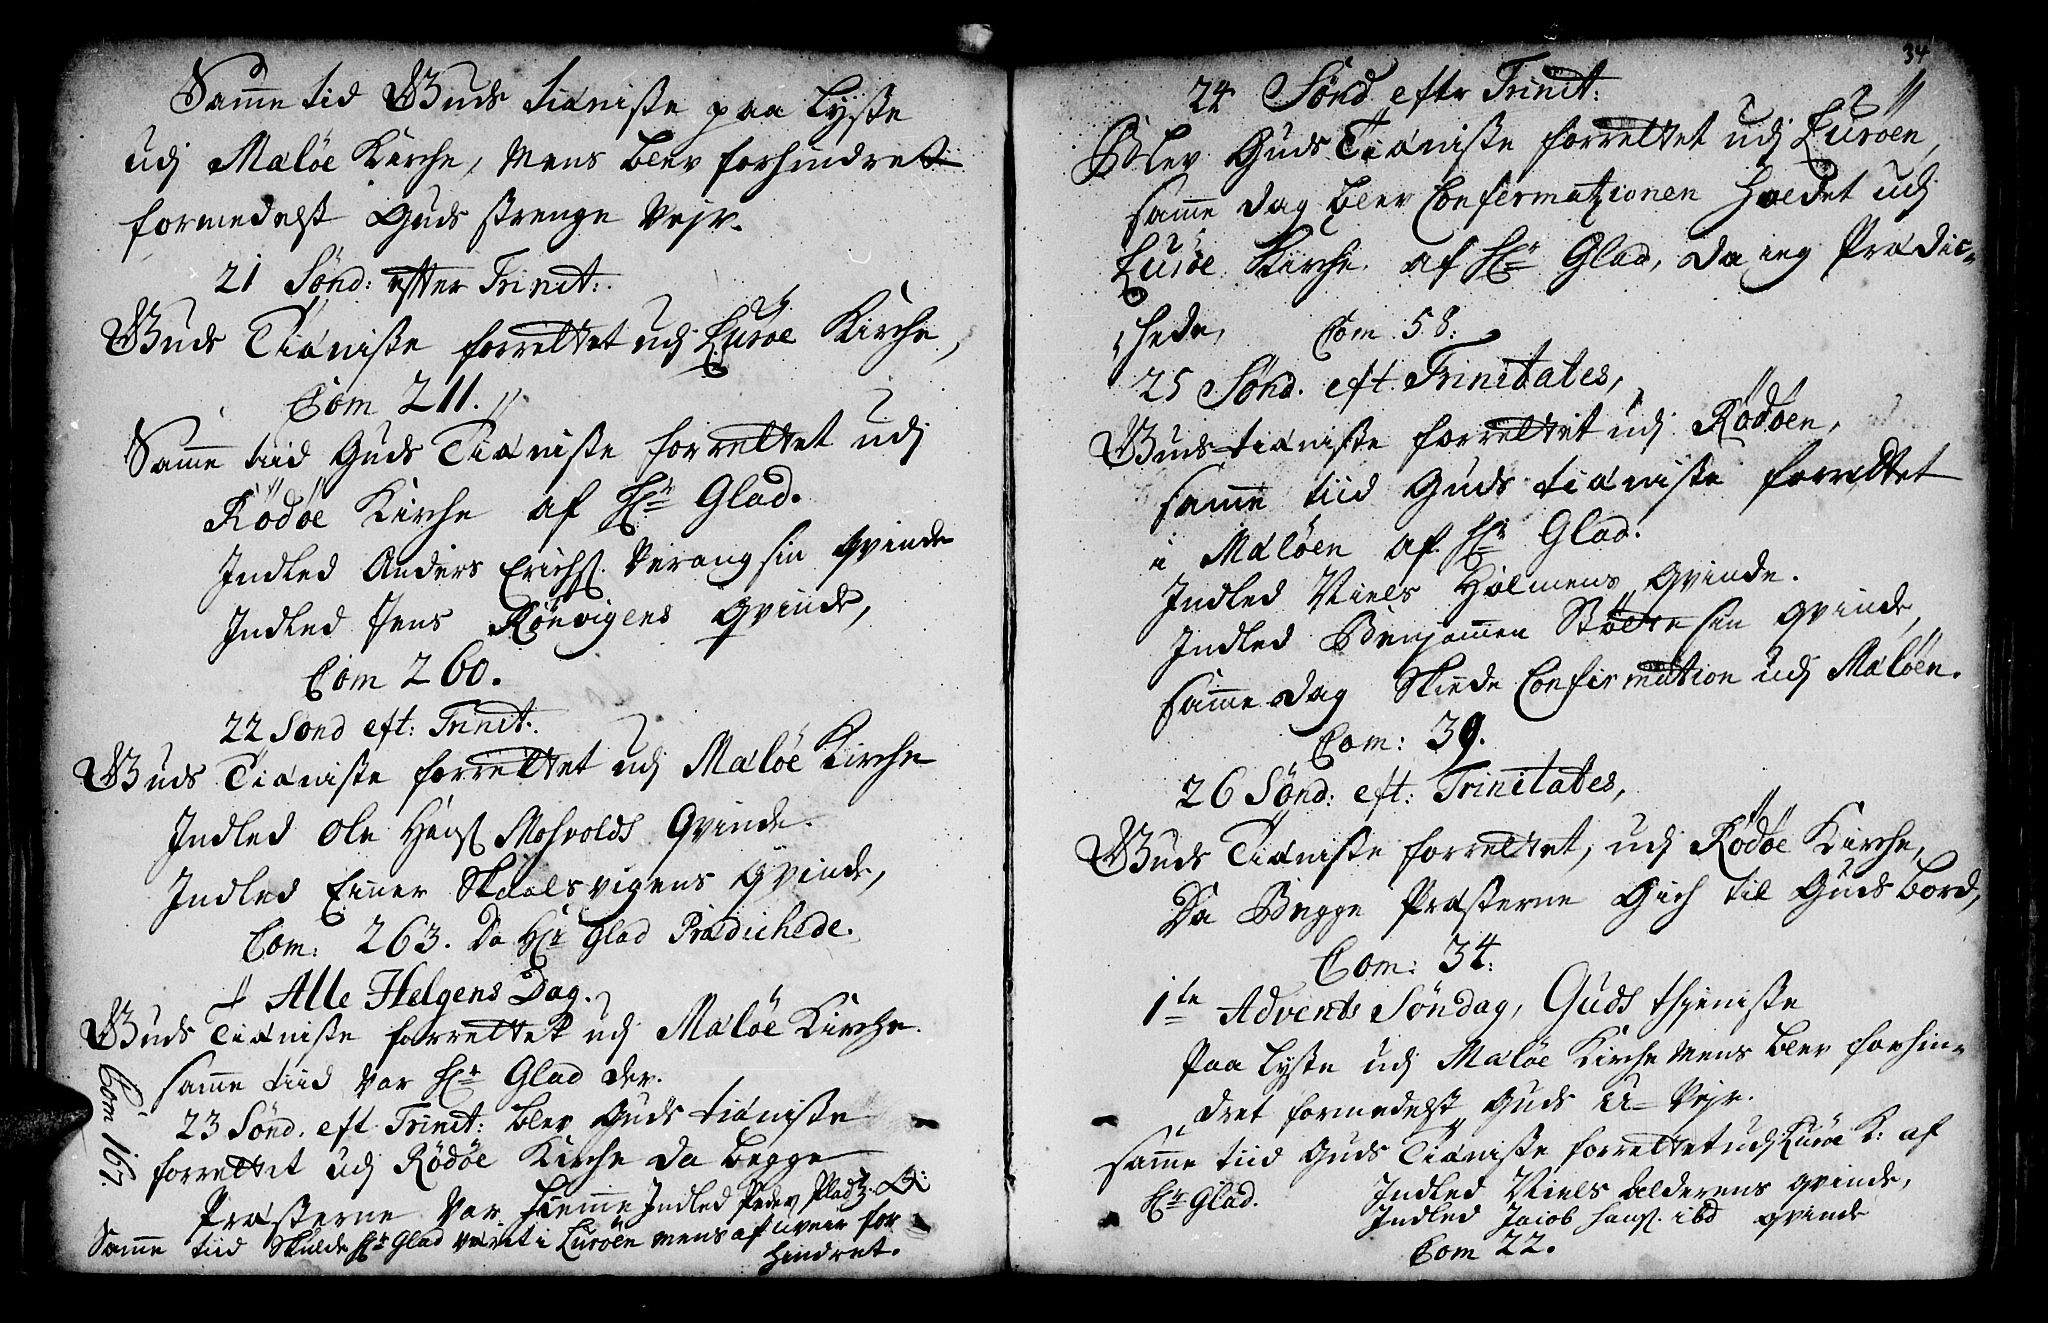 Samme tid Guds tiæniste paa lyste
udj Mæløe Kirche, mens blev forhindret
formedelst Guds strenge Vejr.
21 Sönd: efter Trinit:
Guds Tiæniste forrettet udj Luröe Kirche,
Com 211.
Samme tiid Guds Tiæniste forrettet udj
Rödöe Kirche af Hr Glad.
Indled Anders Erichs. Værang sin qvinde
Indled Jens Rönvigens Qvinde,
Com 260.
22 Sönd eft: Trinit:
Guds Tiæniste forrettet udj Mæløe Kirche
Indled Ole Hans Mosvolds Qvinde.
Indled Einer Skaalsvigens Qvinde,
Com: 263. Da Hr Glad Prædichede.
† Alle Helgens Dag.
Guds Tiæniste forrettet udj Mæløe Kirche.
samme tiid var Hr Glad der.
Com 167.
23 Sönd. eft Trinit: blev Guds tiæniste
forrettet udj Rödöe Kirche da begge
Præsterne var hiemme Indled Peder Pladtz. Q:
Samme tiid skulde Hr Glad været i Luröen mens af uveir for
hindret.
34
24 Sönd eftr Trinit:
Blev Guds Tiæniste forrettet udj Luröen,
samme dag blev Confermationen Holdet udj
Luröe Kirche af Hr Glad, da ieg Prædic-
hede, Com 58:
25 Sönd. eft. Trinitates,
Guds tiæniste forrettet udj Rödöen,
samme tiid Guds tiæniste forrettet
i Mæløen af Hr Glad.
Indled Niels Holmens Qvinde.
Indled Benjamen Stölen sin qvinde,
samme dag skeede Confirmation udj Mæløen.
Com: 39.
26 Sönd: eft: Trinitates,
Guds Tiæniste forrettet, udj Rödöe Kirche,
Da Begge Præsterne Gich til Guds bord,
Com: 34:
1te Advents Söndag, Guds thieniste
Paa lyste udj Mæløe Kirche mens blev forhin-
dret formedelst Guds U-Vejr.
samme tiid Guds Tiæniste forrettet udj Luröe K: af
Hr Glad. Indled Niels Alderens qvinde,
Indled Jacob Hans. ibd qvinde
Com 22.